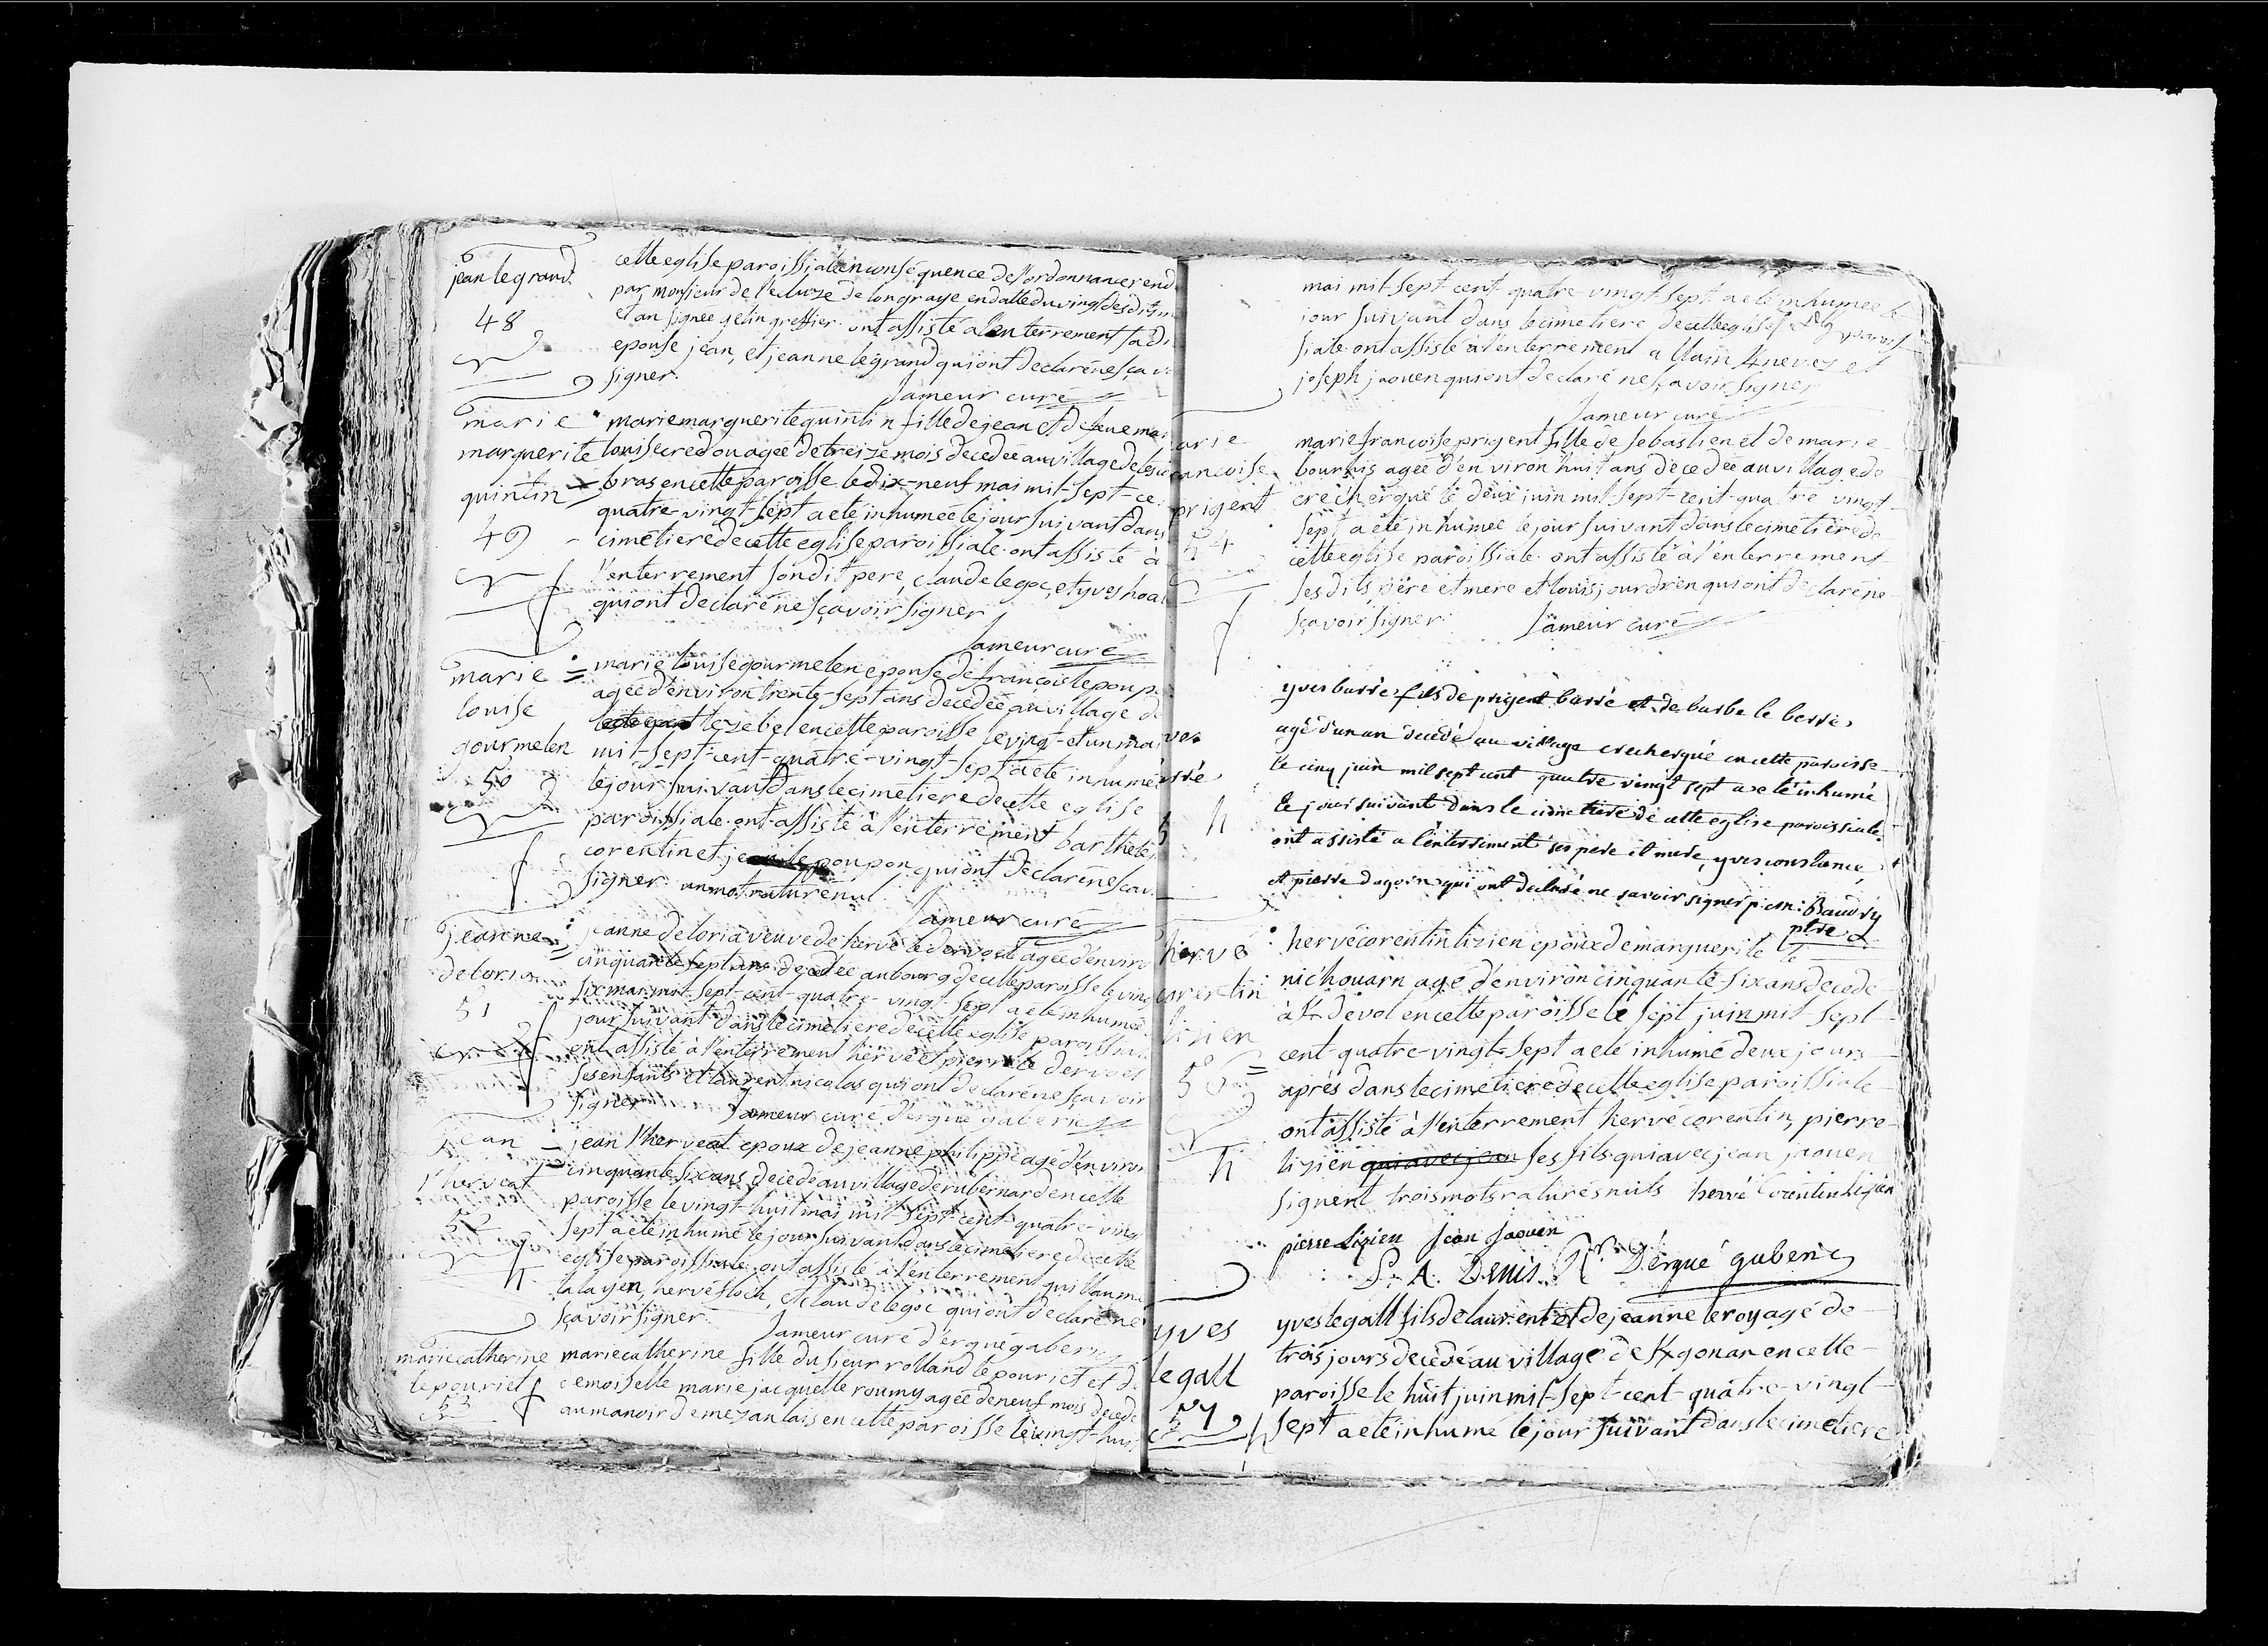 jean le grand
48
cette eglise paroissiale en consequence de l'ordonnance rend
par monsieur de l'ecluze de longraye en datte du vingt desdits m
et an signée gelin greffier. ont assisté à l'enterrement sa di
epouse jean, et jeanne le grand qui ont declaré ne sçav
signer.
Jameur curé
marie
marguerite
quintin
49
marie marguerite quintin fille de jean et de feue mar
louise credou agée de treize mois decedée au village de
bras en cette paroisse le dix-neuf mai mil-sept-ce
quatre-vingt-sept a eté inhumée le jour suivant dans
cimetiere de cette eglise paroissiale. ont assisté à
l'enterrement son dit pere, claude le goc, et yves hoa
qui ont declaré ne sçavoir signer
Jameur curé
marie
louise
gourmelen
50
marie louise gourmelen epouse de françois le poup
agée d'environ trente-sept ans decedée au village d
lezebel en cette paroisse le vingt-et un mai
mil-sept-cent-quatre-vingt-sept a eté inhumée
le jour suivant dans le cimetiere de cette eglise
paroissiale. ont assisté à l'enterrement barthele
corentin et jean le poupon qui ont declaré ne sçav
signer un mot raturé nul
Jameur curé
jeanne
deloria
51
jeanne deloria veuve de hervé le dervoet agée d'enviro
cinquante sept ans decedée au bourg de cette paroisse le ving
six mai mil-sept-cent-quatre-vingt-sept a eté inhumée
jour suivant dans le cimetiere de cette eglise paroissiale
ont assisté à l'enterrement hervé et pierre le dervoet
ses enfants et laurent nicolas qui ont declaré ne sçavoir
signer Jameur curé d'ergué gaberic
jean
l'herveat
52
jean l'herveat epoux de jeanne philippe agé d'environ
cinquante six ans decedé au village de rubernard en cette
paroisse le vingt-huit mai mil-sept-cent-quatre-ving
sept a eté inhumé le jour suivant dans le cimetiere de cette
eglise paroissiale. ont assisté à l'enterrement guillaume
talayen, hervé floch, et claude le goc qui ont declaré ne
sçavoir signer Jameur curé d'ergué gaberic
marie catherine
le pouriet
53
marie catherine fille du sieur rolland le pouriet et d
emoiselle marie jacquette roumy agée de neuf mois decedé
au manoir de mezanlais en cette paroisse le vingt-hui
mai mil-sept-cent-quatre-vingt-sept a eté inhumée le
jour suivant dans le cimetiere de cette eglise parois
siale. ont assisté à l'enterrement allain nevez et
joseph jaouen qui ont declaré ne sçavoir signer
Jameur curé
arie
ancoise
prigent
54
marie francoise prigent fille de sebastien et de marie
bourhis agée d'environ huit ans decedée au village de
crecherqué le deux juin mil-sept-cent-quatre vingt-
sept a eté inhumée le jour suivant dans le cimetiere de
cette eglise paroissiale ont assisté à l'enterrement
ses dits pere et mere et louis jourdren qui ont declaré ne
sçavoir signer. Jameur curé
ves
rré
yves barré fils de prigent barré et de barbe le berre
agé d'un an decedé au village crecherqué en cette paroisse
le cinq juin mil sept cent quatre vingt sept a eté inhumé
le jour suivant dans le cimetiere de cette eglise paroissiale.
ont assisté a l'enterrement ses pere et mere, yves constance,
et pierre dagorn qui ont declaré ne savoir signer Baudry
ptre
hervé
corentin
lizien
56
hervé corentin lizien epoux de marguerite le
nichouarn agé d'environ cinquante-six ans decedé
à St devol en cette paroisse le sept juin mil-sept
cent-quatre-vingt-sept a eté inhumé deux jours
après dans le cimetiere de cette eglise paroissiale
ont assisté à l'enterrement hervé corentin, pierre
lizien qui avec jean ses fils qui avec jean jaouen
signent trois mots raturés nuls hervé Corentin Lizien
pierre Lizien Jean Jaouen
A. Denis Rr. D'ergué gaberic
yves
le gall
57
yves le gall fils de laurent et de jeanne le roy agé de
trois jours decedé au village de Kgonan en cette
paroisse le huit juin mil-sept-cent-quatre-vingt
sept a eté inhumé le jour suivant dans le cimetiere